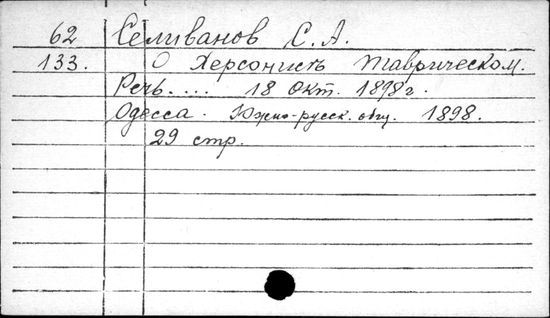 62 Селиванов С. А.
133. О Херсонисѣ Таврическом.
Речь.... 18 Окт. 1898 г.
Одесса. Южно-русск. общ. 1898.
29 стр.